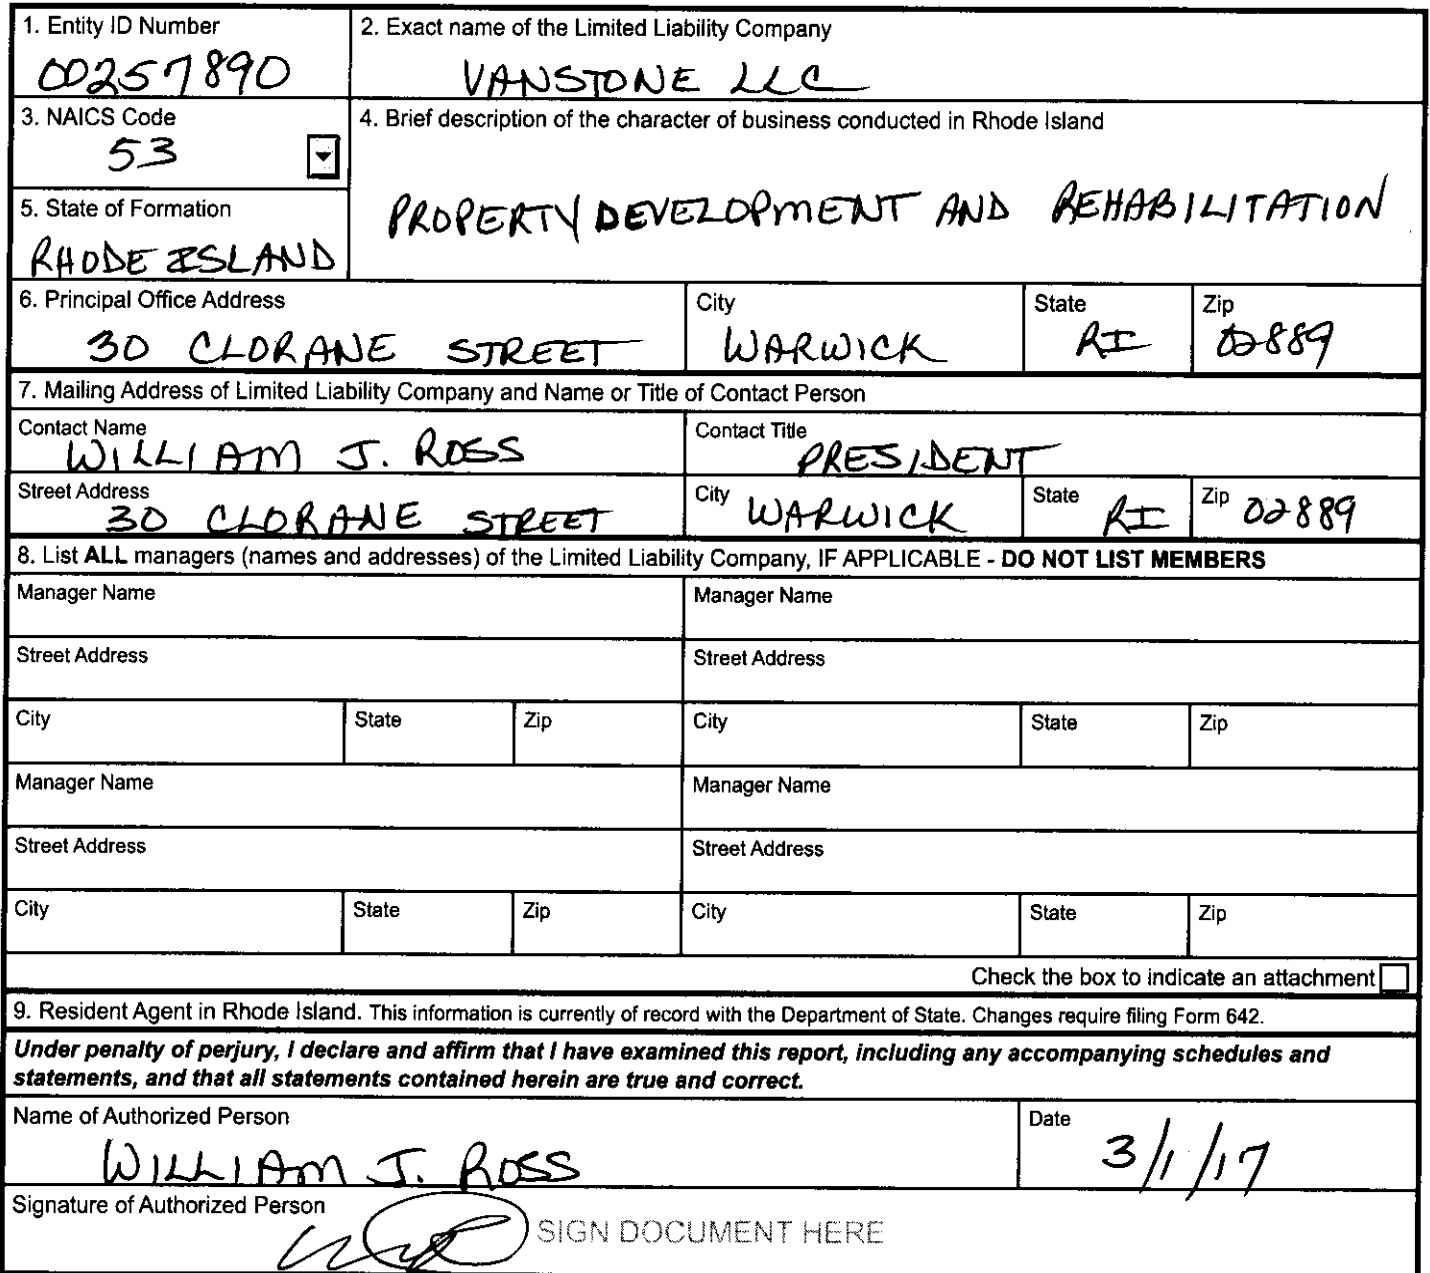 1. Entity ID Number
00257890
2. Exact name of the Limited Liability Company
VANSTONE LLC
3. NAICS Code
53
4. Brief description of the character of business conducted in Rhode Island
PROPERTY DEVELOPMENT AND REHABILITATION
5. State of Formation
RHODE ISLAND
6. Principal Office Address
30 CLORANE STREET
City
WARWICK
State
RI
Zip
02889
7. Mailing Address of Limited Liability Company and Name or Title of Contact Person
Contact Name
WILLIAM J. ROSS
Contact Title
PRESIDENT
Street Address
30 CLORANE STREET
City
WARWICK
State
RI
Zip
02889
8. List ALL managers (names and addresses) of the Limited Liability Company, IF APPLICABLE - DO NOT LIST MEMBERS
Manager Name
Manager Name
Street Address
Street Address
City
State
Zip
City
State
Zip
Manager Name
Manager Name
Street Address
Street Address
City
State
Zip
City
State
Zip
Check the box to indicate an attachment
9. Resident Agent in Rhode Island. This information is currently of record with the Department of State. Changes require filing Form 642.
Under penalty of perjury, I declare and affirm that I have examined this report, including any accompanying schedules and
statements, and that all statements contained herein are true and correct.
Name of Authorized Person
WILLIAM J. ROSS
Date
3/1/17
Signature of Authorized Person
SIGN DOCUMENT HERE